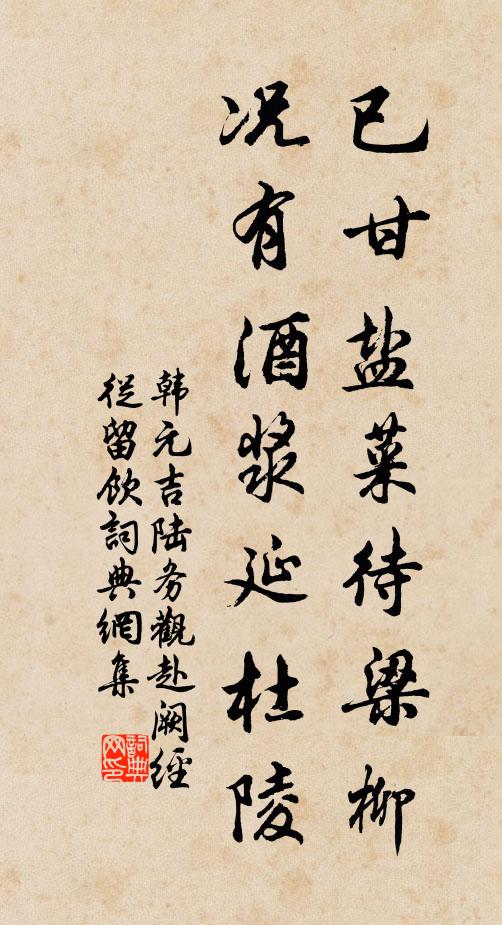 已甘盐菜待梁柳
况有酒浆延杜陵
韩元吉陆务觀赴阙經
從留飲詞典網集
詞典網印